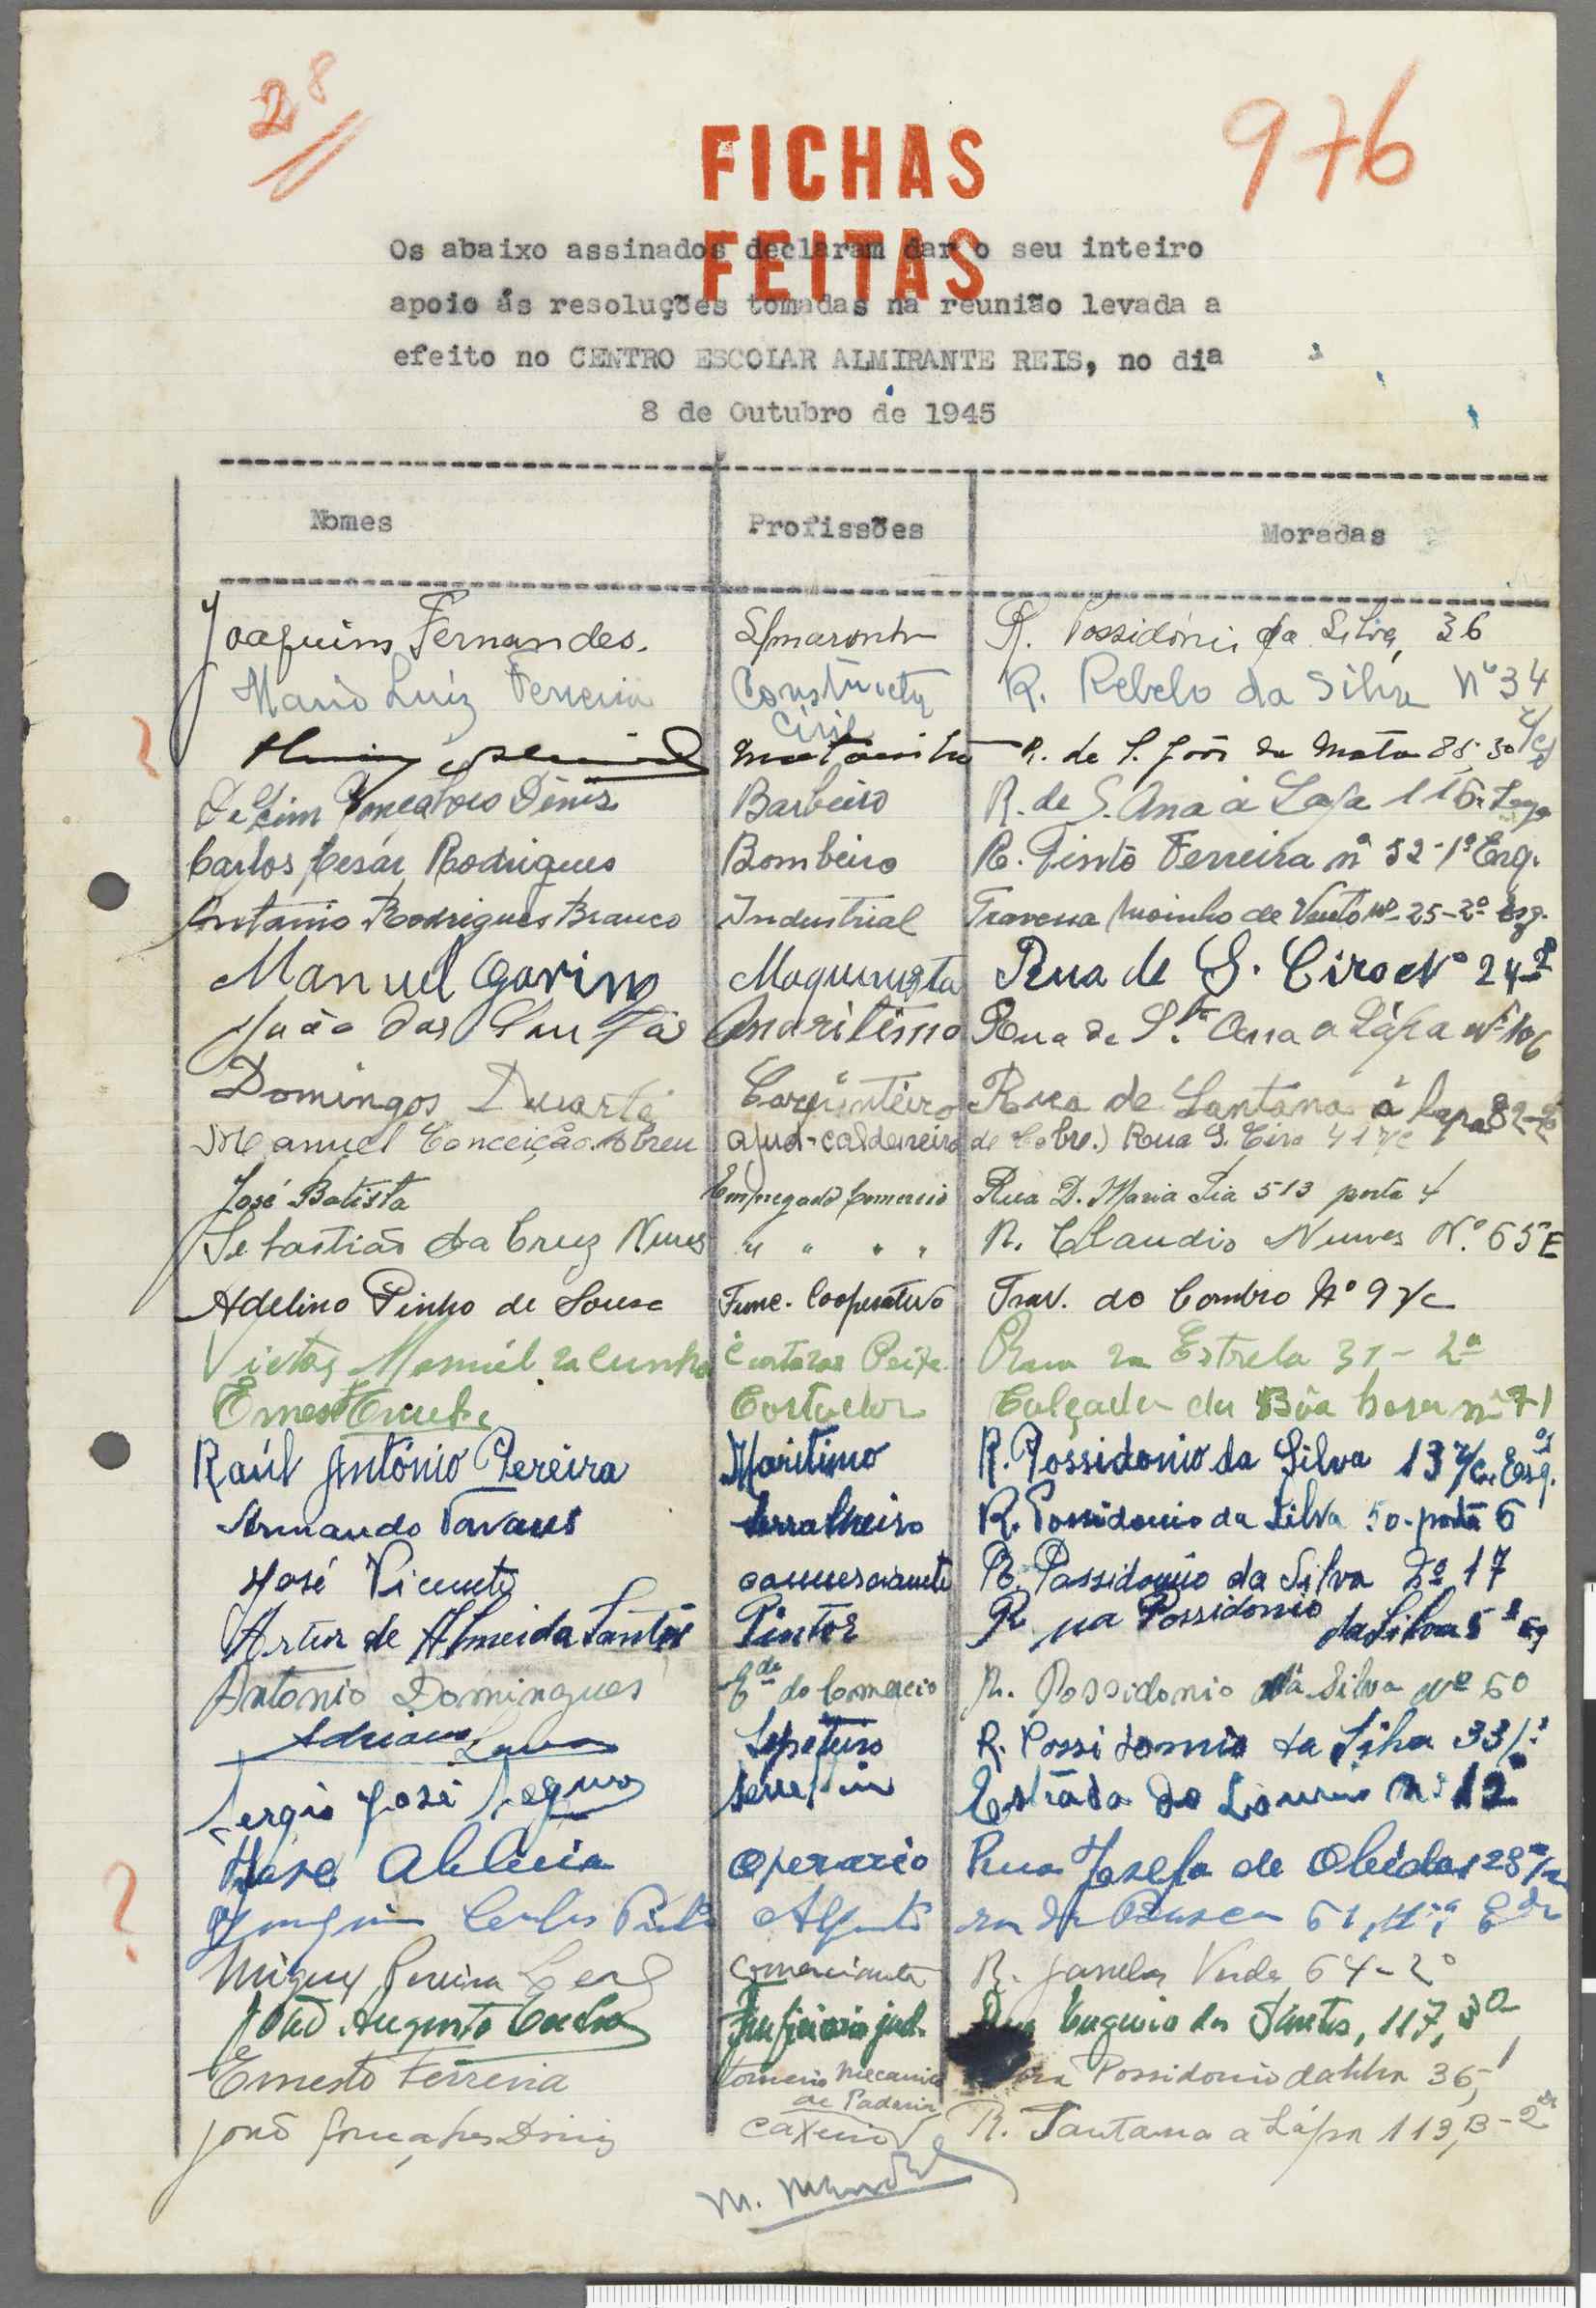 28
976
FICHAS
FEITAS
Os abaixo assinados declaram dar o seu inteiro
apoio ás resoluções tomadas na reunião levada a
efeito no CENTRO ESCOLAR ALMIRANTE REIS, no dia
8 de Outubro de 1945
Nomes Profissões Moradas
Joaquim Fernandes. R. Possidóni da Silva, 36
Mario Luíz Ferreira Constructor Civil R. Rebelo da Silva Nº 34
? R. de S. João da Mata 88,
Gonçalves Dinis Barbeiro R. de S. Ana à Lapa 116
Carlos Cesár Rodrigues Bombeiro R. Pinto Ferreira nº 32-1º Esq.
Antonio Rodrigues Branco Industrial Travessa Moinho de Vento nº 25-2º Esq.
Manuel Maquinista Rua de S. Ciro Nº 24
João dos Maritimo Rua de Stª Ana a Lápa nº 106
Domingos Duarte Carpinteiro Rua de Santana á Lapa 82-2º
Manuel Conceição Abreu ajud-caldeireiro de Cobre.) Rua S. Ciro 41 r/c
José Batista Empregado Comercio Rua D. Maria Pia 513 porta 4
Sebastião da Cruz Nunes " " " " R. Claudio Nunes N.º 65 E
Adelino Pinho de Sousa Func. Cooperativo Trav. do Combro Nº 9 r/c
Victor Manuél da Cunha Peixe Rua da Estrela 31-2º
Cortador Calçada da Bôa hora nº 71
Raúl António Pereira Maritimo R. Possidonio da Silva 13 r/c. Esq.
Armando Tavares Serralheiro R. Possidonio da Silva 50-porta 6
José Vicente comerciante R. Possidonio da Silva Nº 17
Artur de Almeida Santos Pintor R ua Possidonio da Silva 5
Antonio Domingues E.do do Comercio R. Possidonio da Silva nº 60
Adriano R. Possidonio da Silva 33
Sergio José Estráda do nº 12
José Operario Rua Josefa de Obidos 28
? Joaquim Carlos 61,
Miguel Pereira Leal Comerciante R. Janelas Verdes 64-2º
João Augusto jud. Rua Eugenio dos Santos, 117, 3º
Ernesto Ferreira torneiro Mecanico Possidonio da Silva 36,
de Padaria
João Gonçalves Dinis caxeiro R. Santana a Lápa 113, B-2º
M.